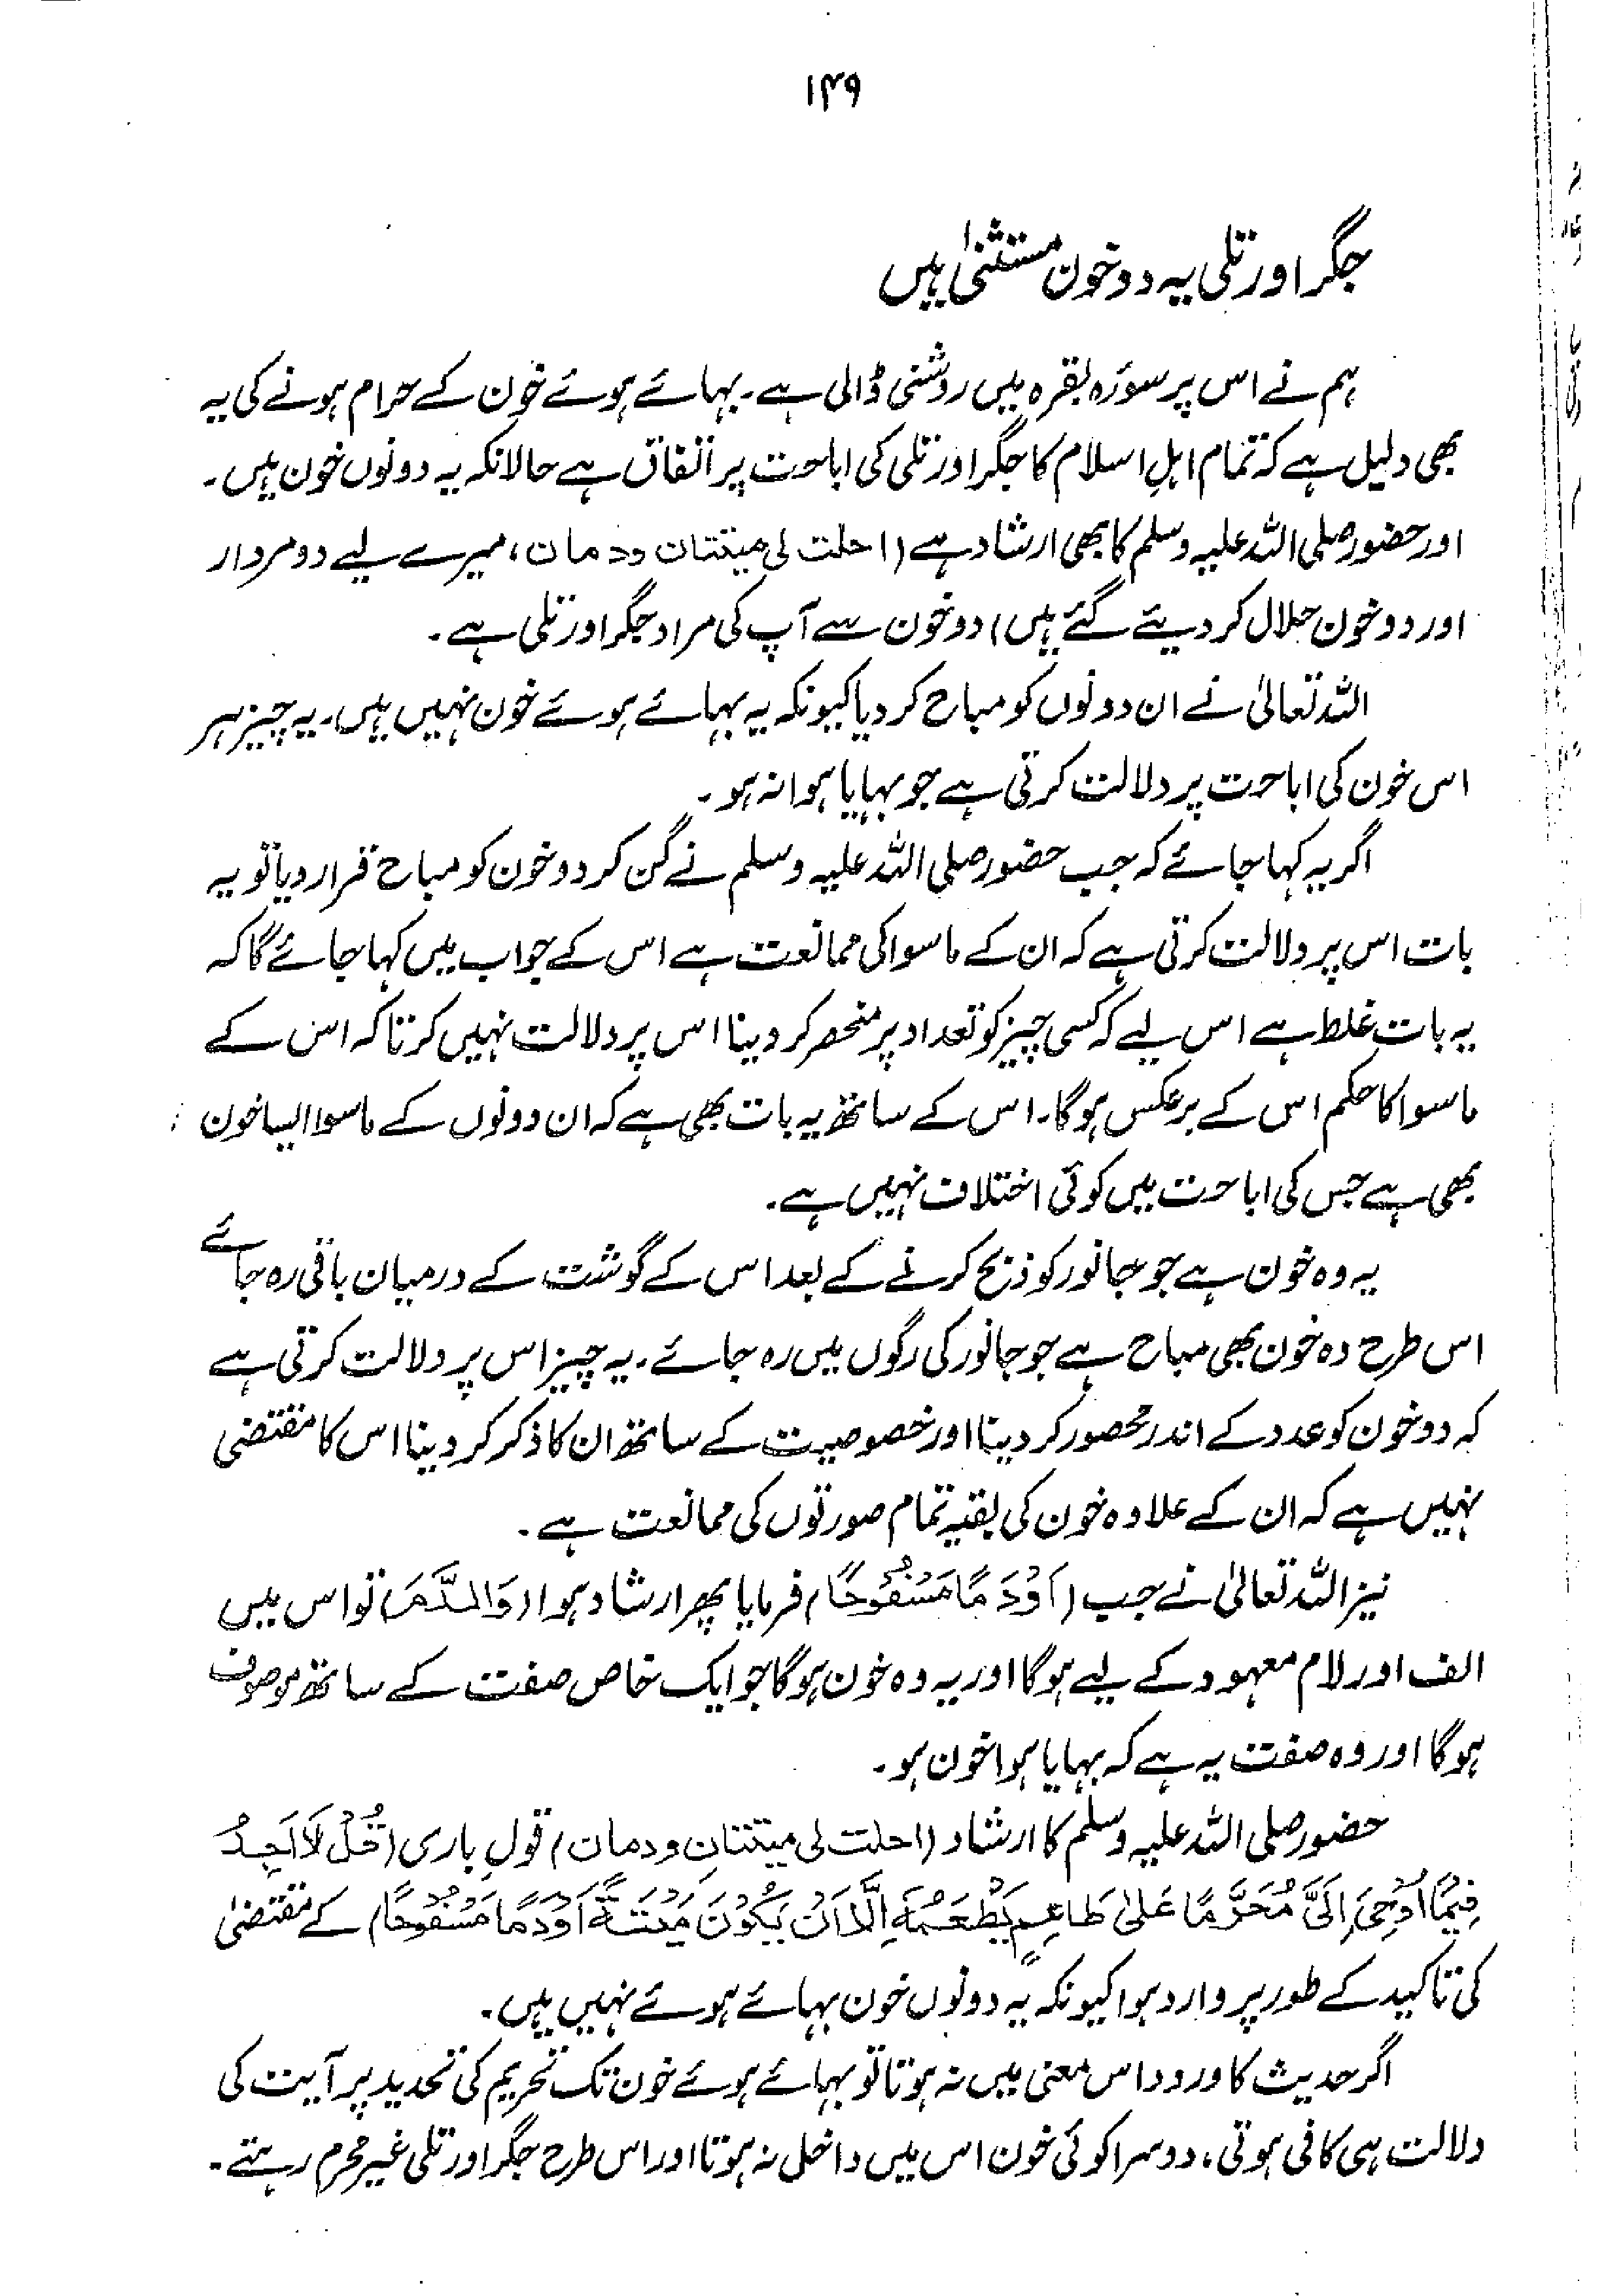 ۱۴۹
جگر اور تلی یہ دو خون مستثنیٰ ہیں
ہم نے اس پر سورۂ بقرہ میں روشنی ڈالی ہے۔ بہائے ہوئے خون کے حرام ہونے کی یہ
بھی دلیل ہے کہ تمام اہلِ اسلام کا جگر اور تلی کی اباحت پر اتفاق ہے حالانکہ یہ دونوں خون ہیں۔
اور حضور صلی اللہ علیہ وسلم کا بھی ارشاد ہے (احلت لی میتتان ودمان، میرے لیے دو مردار
اور دو خون حلال کر دیئے گئے ہیں) دو خون سے آپ کی مراد جگر اور تلی ہے۔
اللہ تعالیٰ نے ان دونوں کو مباح کر دیا کیونکہ یہ بہائے ہوئے خون نہیں ہیں۔ یہ چیز ہر
اس خون کی اباحت پر دلالت کرتی ہے جو بہایا ہوا نہ ہو۔
اگر یہ کہا جائے کہ جب حضور صلی اللہ علیہ وسلم نے گن کر دو خون کو مباح قرار دیا تو یہ
بات اس پر دلالت کرتی ہے کہ ان کے ماسوا کی ممانعت ہے اس کے جواب میں کہا جائے گا کہ
یہ بات غلط ہے اس لیے کہ کسی چیز کو تعداد پر منحصر کر دینا اس پر دلالت نہیں کرتا کہ اس کے
ماسوا کا حکم اس کے برعکس ہوگا۔ اس کے ساتھ یہ بات بھی ہے کہ ان دونوں کے ماسوا ایسا خون
بھی ہے جس کی اباحت میں کوئی اختلاف نہیں ہے۔
یہ وہ خون ہے جو جانور کو ذبح کرنے کے بعد اس کے گوشت کے درمیان باقی رہ جائے
اس طرح وہ خون بھی مباح ہے جو جانور کی رگوں میں رہ جائے۔ یہ چیز اس پر دلالت کرتی ہے
کہ دو خون کو عدد کے اندر محصور کر دینا اور خصوصیت کے ساتھ ان کا ذکر کر دینا اس کا مقتضی
نہیں ہے کہ ان کے علاوہ خون کی بقیہ تمام صورتوں کی ممانعت ہے۔
نیز اللہ تعالیٰ نے جب (اَوْدَمًا مَسْفُوْحًا) فرمایا پھر ارشاد ہوا (وَالدَّمَ) تو اس میں
الف اور لام معہود کے لیے ہوگا اور یہ وہ خون ہوگا جو ایک خاص صفت کے ساتھ موصوف
ہوگا اور وہ صفت یہ ہے کہ بہایا ہوا خون ہو۔
حضور صلی اللہ علیہ وسلم کا ارشاد (احلت لی میتتانِ ودمان) قولِ باری (قُلْ لَا اَجِدُ
فِیْمَا اُوْحِیَ اِلَیَّ مُحَرَّمًا عَلٰی طَاعِمٍ یَّطْعَمُہٗ اِلَّا اَنْ یَّکُوْنَ مَیْتَۃً اَوْدَمًا مَسْفُوْحًا) کے مقتضیٰ
کی تاکید کے طور پر وارد ہوا کیونکہ یہ دونوں خون بہائے ہوئے نہیں ہیں۔
اگر حدیث کا ورود اس معنی میں نہ ہوتا تو بہائے ہوئے خون تک تحریم کی تحدید پر آیت کی
دلالت ہی کافی ہوتی، دوسرا کوئی خون اس میں داخل نہ ہوتا اور اس طرح جگر اور تلی غیر محرم رہتے۔